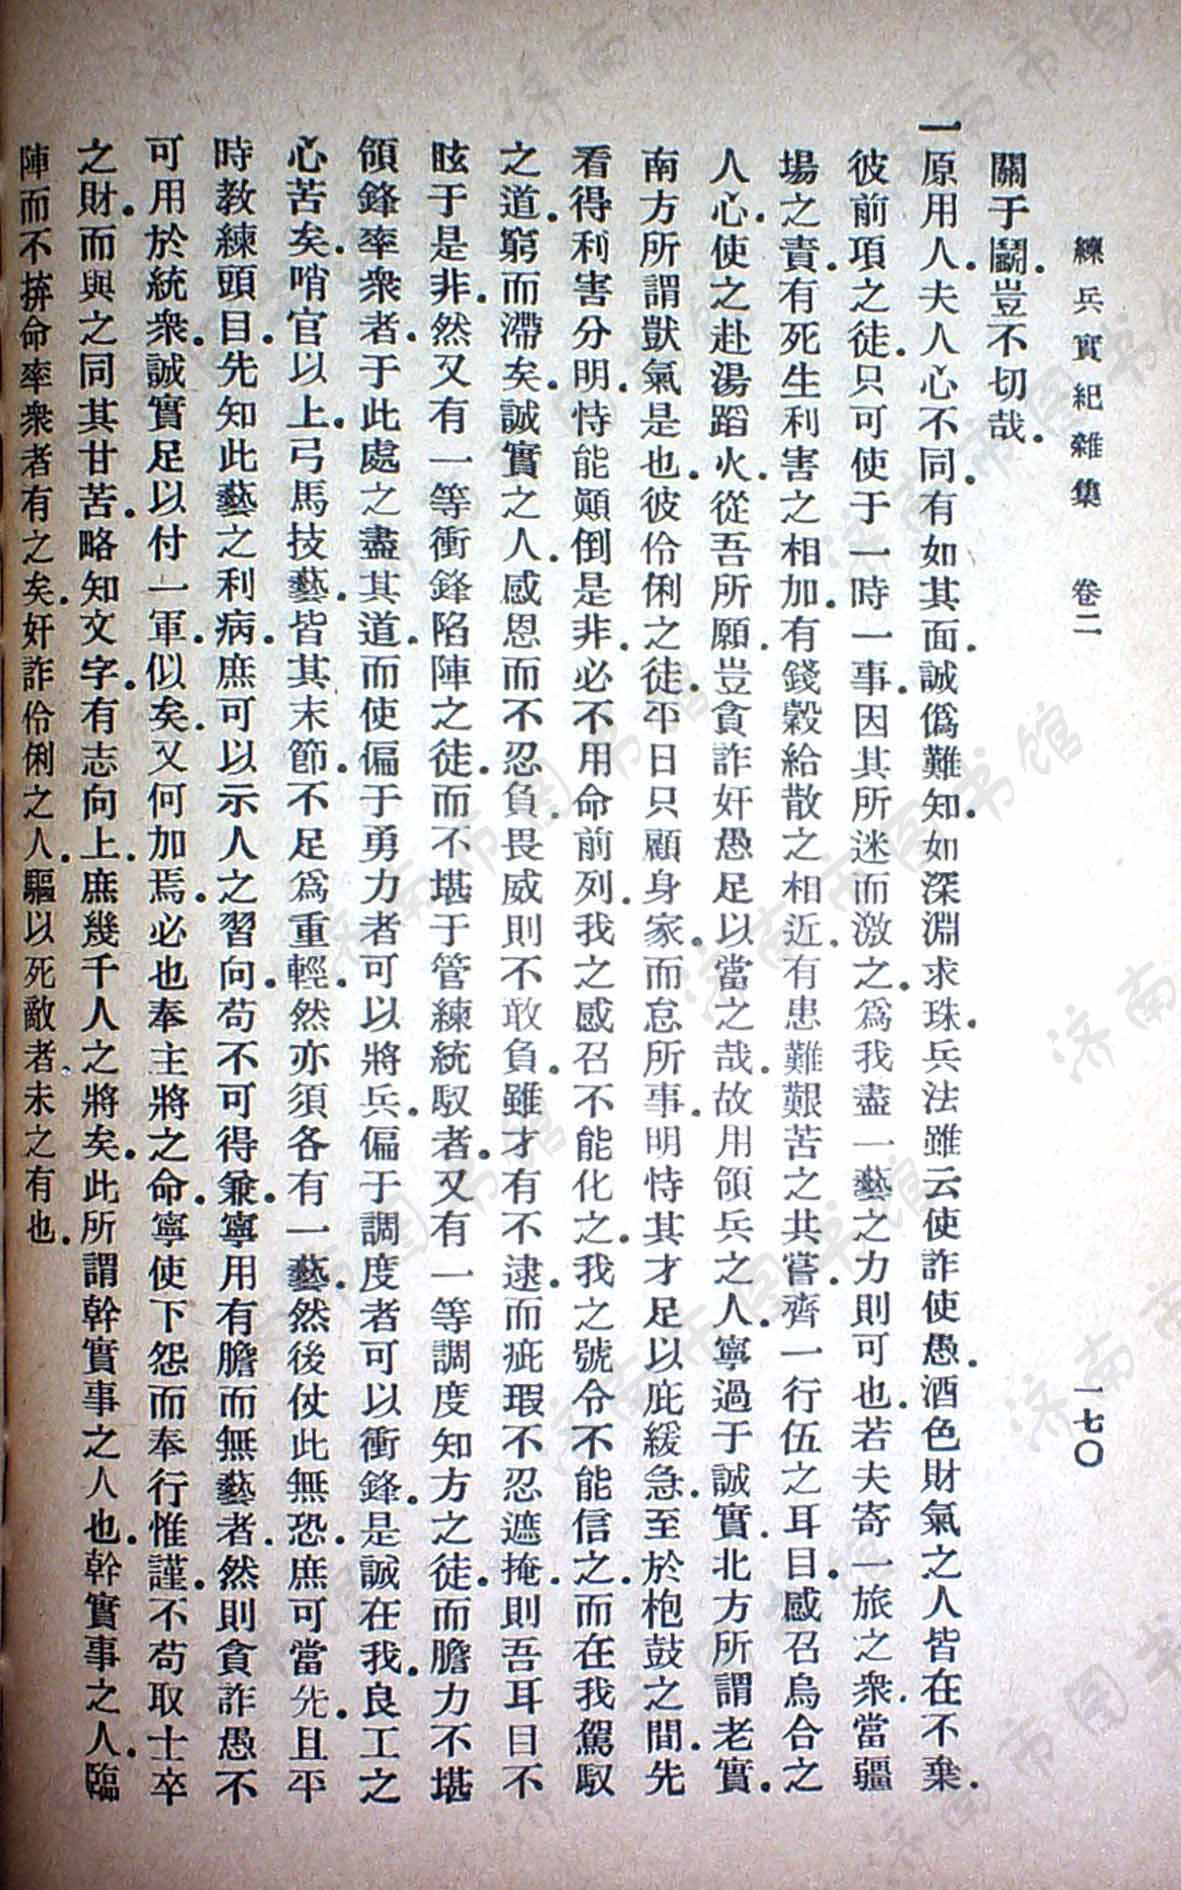 練兵實紀雜集　卷二　一七〇
關于鬭。豈不切哉。
一原用人。夫人心不同。有如其面。誠僞難知。如深淵求珠。兵法雖云使詐使愚。酒色財氣之人皆在不棄。
彼前項之徒。只可使于一時一事。因其所迷而激之。爲我盡一藝之力則可也。若夫寄一旅之衆。當疆
場之責。有死生利害之相加。有錢穀給散之相近。有患難艱苦之共嘗。齊一行伍之耳目。感召烏合之
人心。使之赴湯蹈火。從吾所願。豈貪詐奸愚足以當之哉。故用領兵之人。寧過于誠實。北方所謂老實。
南方所謂獃氣是也。彼伶俐之徒。平日只顧身家。而怠所事。明恃其才足以庇緩急。至於枹鼓之間。先
看得利害分明。恃能顚倒是非。必不用命前列。我之感召不能化之。我之號令不能信之。而在我駕馭
之道。窮而滯矣。誠實之人。感恩而不忍負。畏威則不敢負。雖才有不逮。而疵瑕不忍遮掩。則吾耳目不
眩于是非。然又有一等衝鋒陷陣之徒。而不堪于管練統馭者。又有一等調度知方之徒。而膽力不堪
領鋒率衆者。于此處之盡其道。而使偏于勇力者可以將兵。偏于調度者可以衝鋒。是誠在我。良工之
心苦矣。哨官以上。弓馬技藝。皆其末節。不足爲重輕。然亦須各有一藝。然後仗此無恐。庶可當先。且平
時教練頭目。先知此藝之利病。庶可以示人之習向。苟不可得兼。寧用有膽而無藝者。然則貪詐愚不
可用於統衆。誠實足以付一軍。似矣。又何加焉。必也奉主將之命。寧使下怨而奉行惟謹。不苟取士卒
之財。而與之同其甘苦。略知文字。有志向上。庶幾千人之將矣。此所謂幹實事之人也。幹實事之人。臨
陣而不拚命率衆者有之矣。奸詐伶俐之人。驅以死敵者未之有也。
济南市图书馆